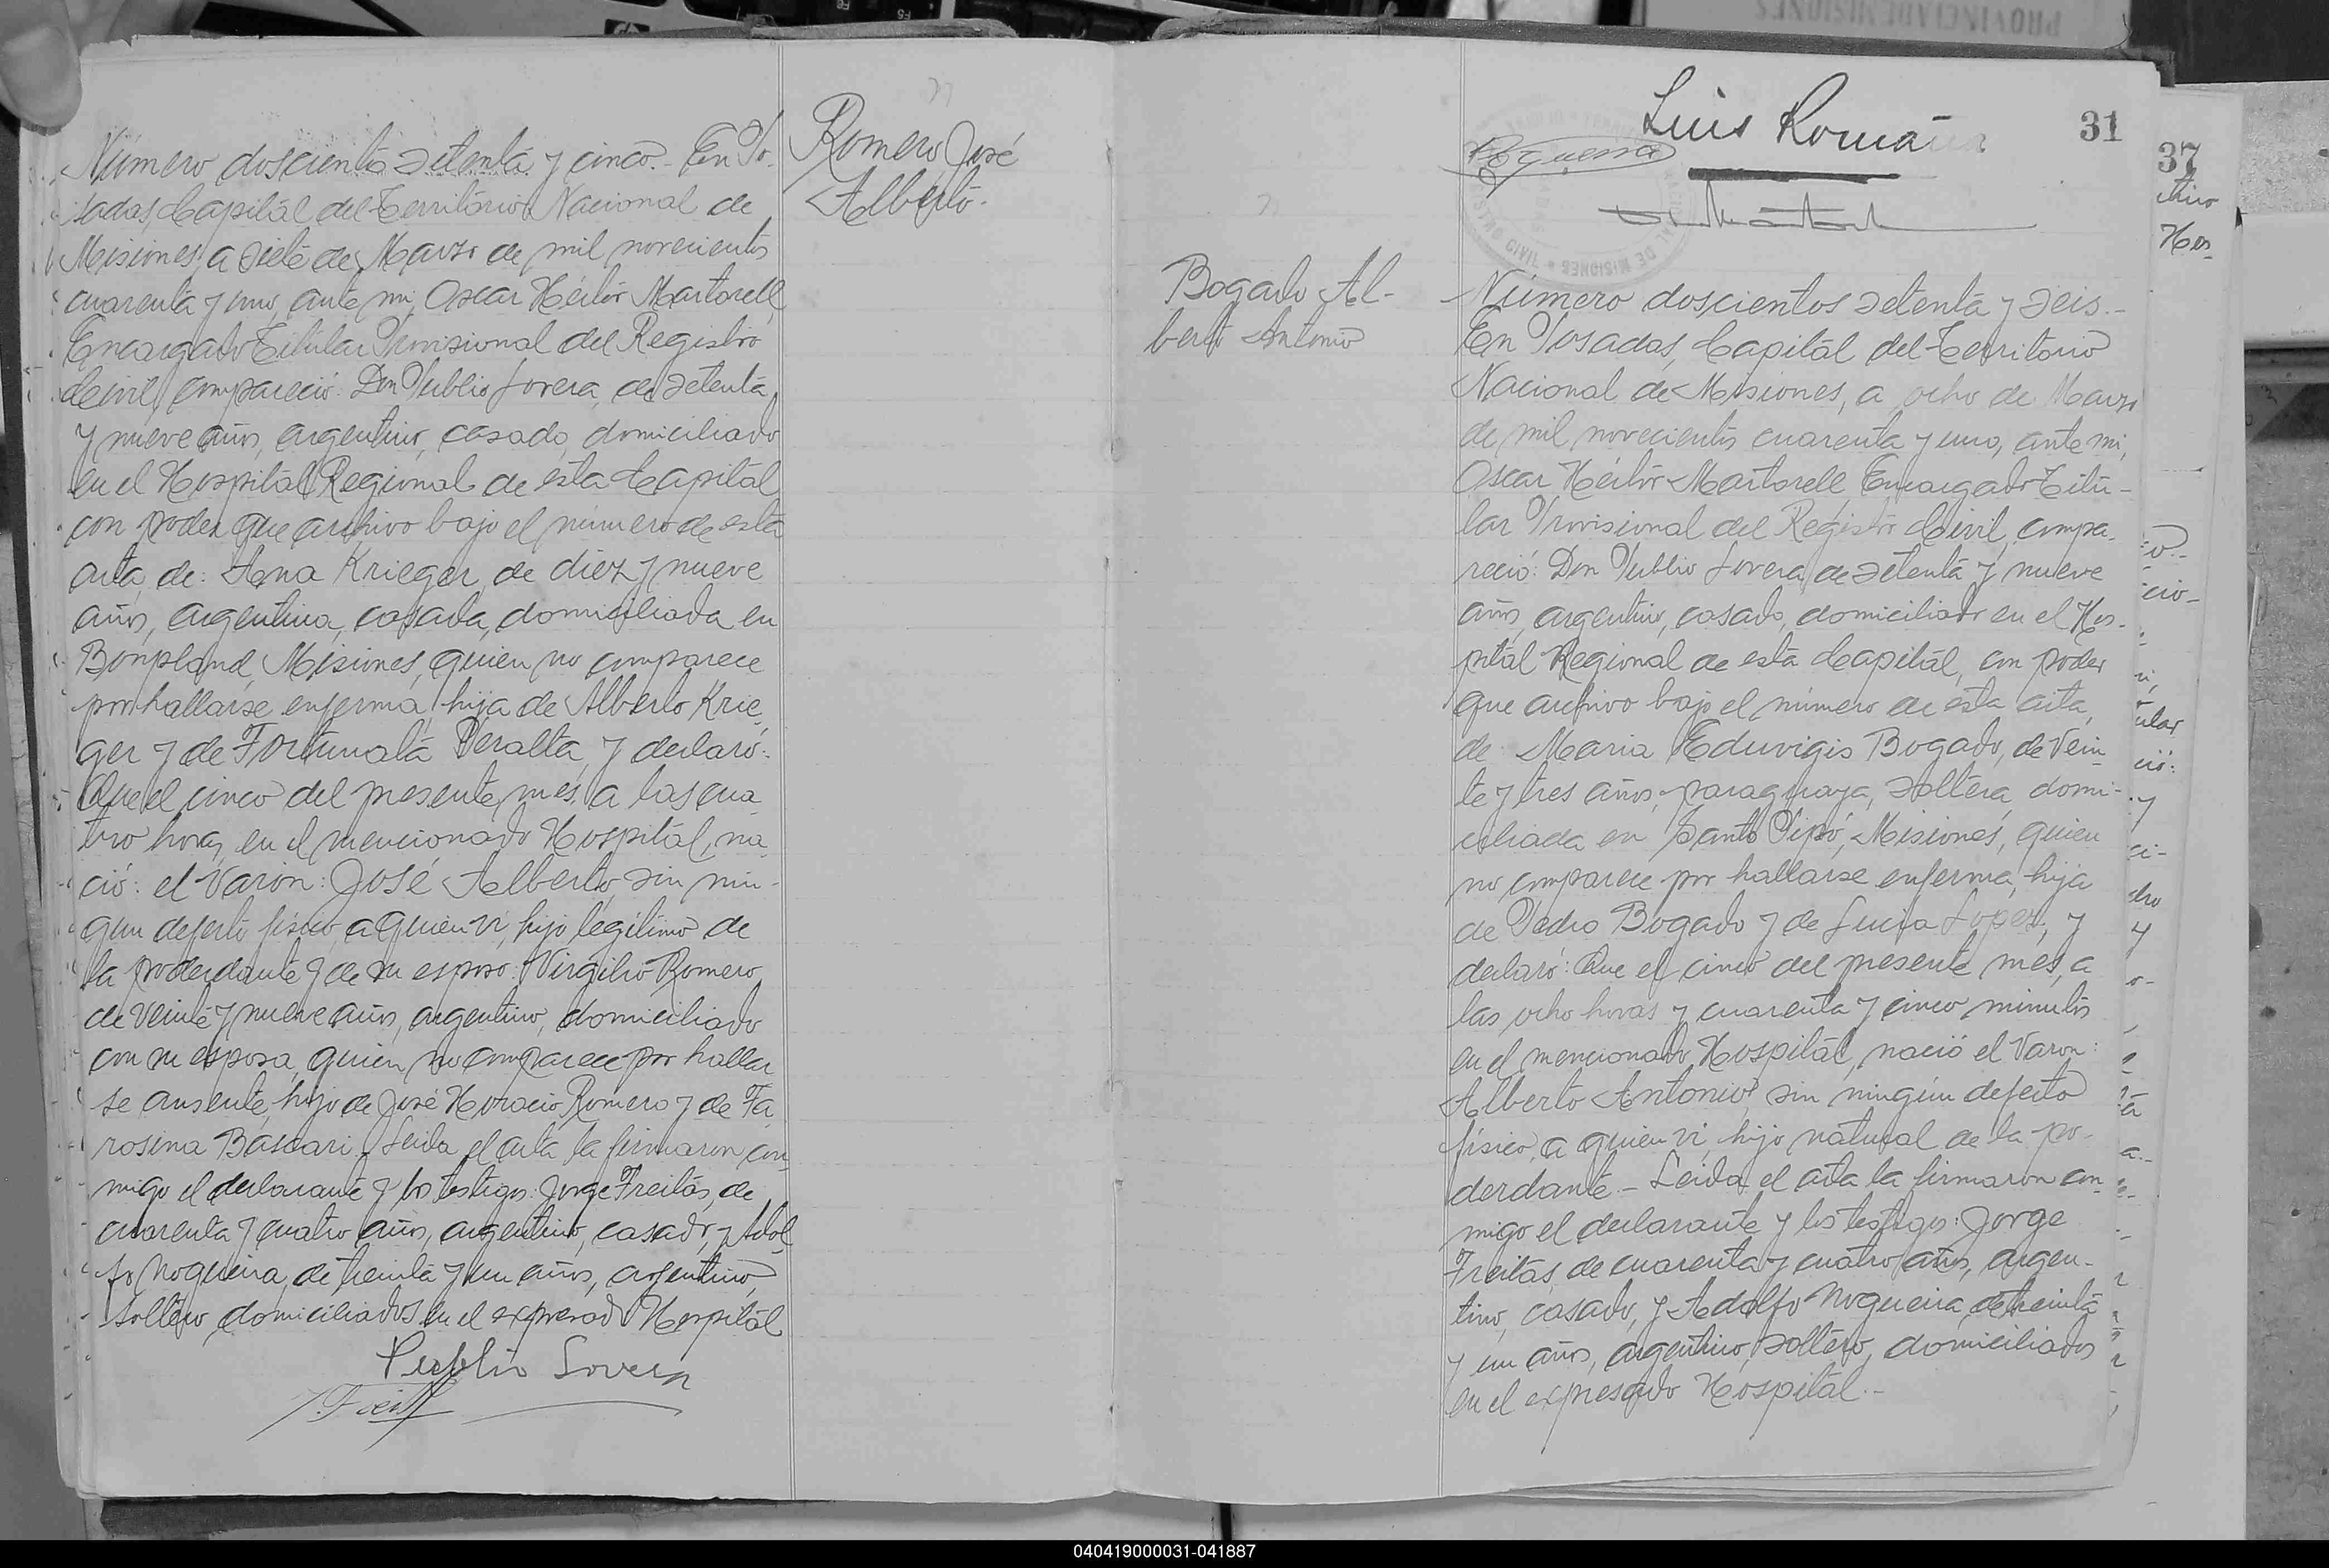 Número doscientos setenta y cinco.- En Po-
sadas, Capital del Territorio Nacional de
Misiones, a siete de Marzo de mil novecientos
cuarenta y uno, ante mi, Oscar Héctor Martorell,
Encargado Titular Provisional del Registro
Civil, compareció: Don Publio Lovera, de setenta
y nueve años, argentino, casado, domiciliado
en el Hospital Regional de esta Capital,
con poder que archivo bajo el número de esta
acta, de: Ana Krieger, de diez y nueve
años, argentina, casada, domiciliada en
Bonpland, Misiones, quien no comparece
por hallarse enferma, hija de Alberto Krie-
ger y de Fortunata Peralta, y declaró:
Que el cinco del presente mes, a las cua-
tro horas, en el mencionado Hospital, na-
ció: el varón: José Alberto, sin nin-
gun defecto físico, a quien vi, hijo legítimo de
la poderdante y de su esposo: Virgilio Romero,
de veinte y nueve años, argentino, domiciliado
con su esposa, quien no comparece por hallar
se ausente, hijo de José Horacio Romero y de Fa-
rosina Báscari.- Leida el acta la firmaron con-
migo el declarante y los testigos: Jorge Freitas, de
cuarenta y cuatro años, argentino, casado, y Adol
fo Nogueira, de treinta y un años, argentino,
soltero, domiciliados en el expresado Hospital
Publio Lovera
Romero José
Alberto.-
31
Luis Romaña
REGISTRO CIVIL
DE MISIONES
Bogado Al-
berto Antonio
Número doscientos setenta y seis.-
En Posadas, Capital del Territorio
Nacional de Misiones, a ocho de Marzo
de mil novecientos cuarenta y uno, ante mi,
Oscar Héctor Martorell, Encargado Titu-
lar Provisional del Registro Civil, compa-
reció: Don Publio Lovera, de setenta y nueve
años, argentino, casado, domiciliado en el Hos-
pital Regional de esta Capital, con poder
que archivo bajo el número de esta acta,
de: Maria Eduvigis Bogado, de vein-
te y tres años, paraguaya, soltera, domi-
ciliada en Santo Pipó, Misiones, quien
no comparece por hallarse enferma, hija
de Pedro Bogado y de Lucia Lopez, y
declaró: Que el cinco del presente mes, a
las ocho horas y cuarenta y cinco minutos
en el mencionado Hospital, nació el varon:
Alberto Antonio, sin ningún defecto
físico, a quien vi, hijo natural de la po-
derdante.- Leida el acta la firmaron con-
migo el declarante y los testigos: Jorge
Freitas, de cuarenta y cuatro años, argen-
tino, casado, y Adolfo Nogueira, de treinta
y un años, argentino, soltero, domiciliados
en el expresado Hospital.-
37
040419000031-041887